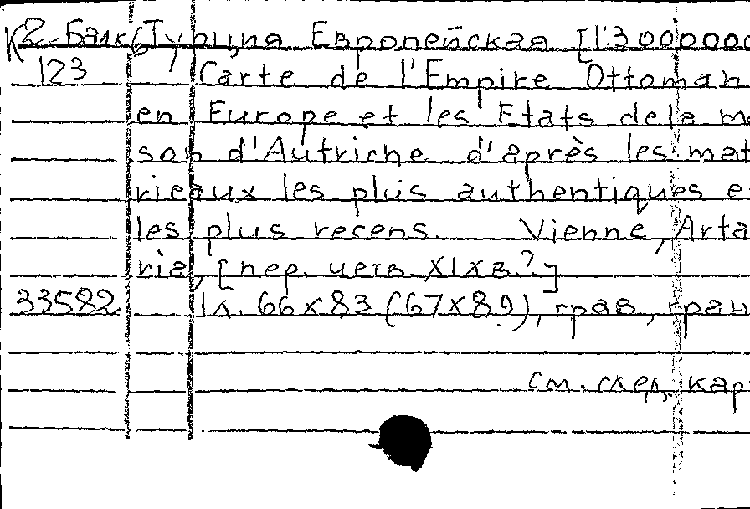 К 2-Балк(б) Турция Европейская [1:3000000
123 Carte de l'Empire Ottoman
en Europe et les Etats dela ma
son d'Autriche d'après les mat
rieaux les plus authentiques e
les plus recens. Vienne, Arta
ria, [пер. четв. XIX в.?]
33582 1 л. 66x83 (67x89), грав., гран
см. след. кар